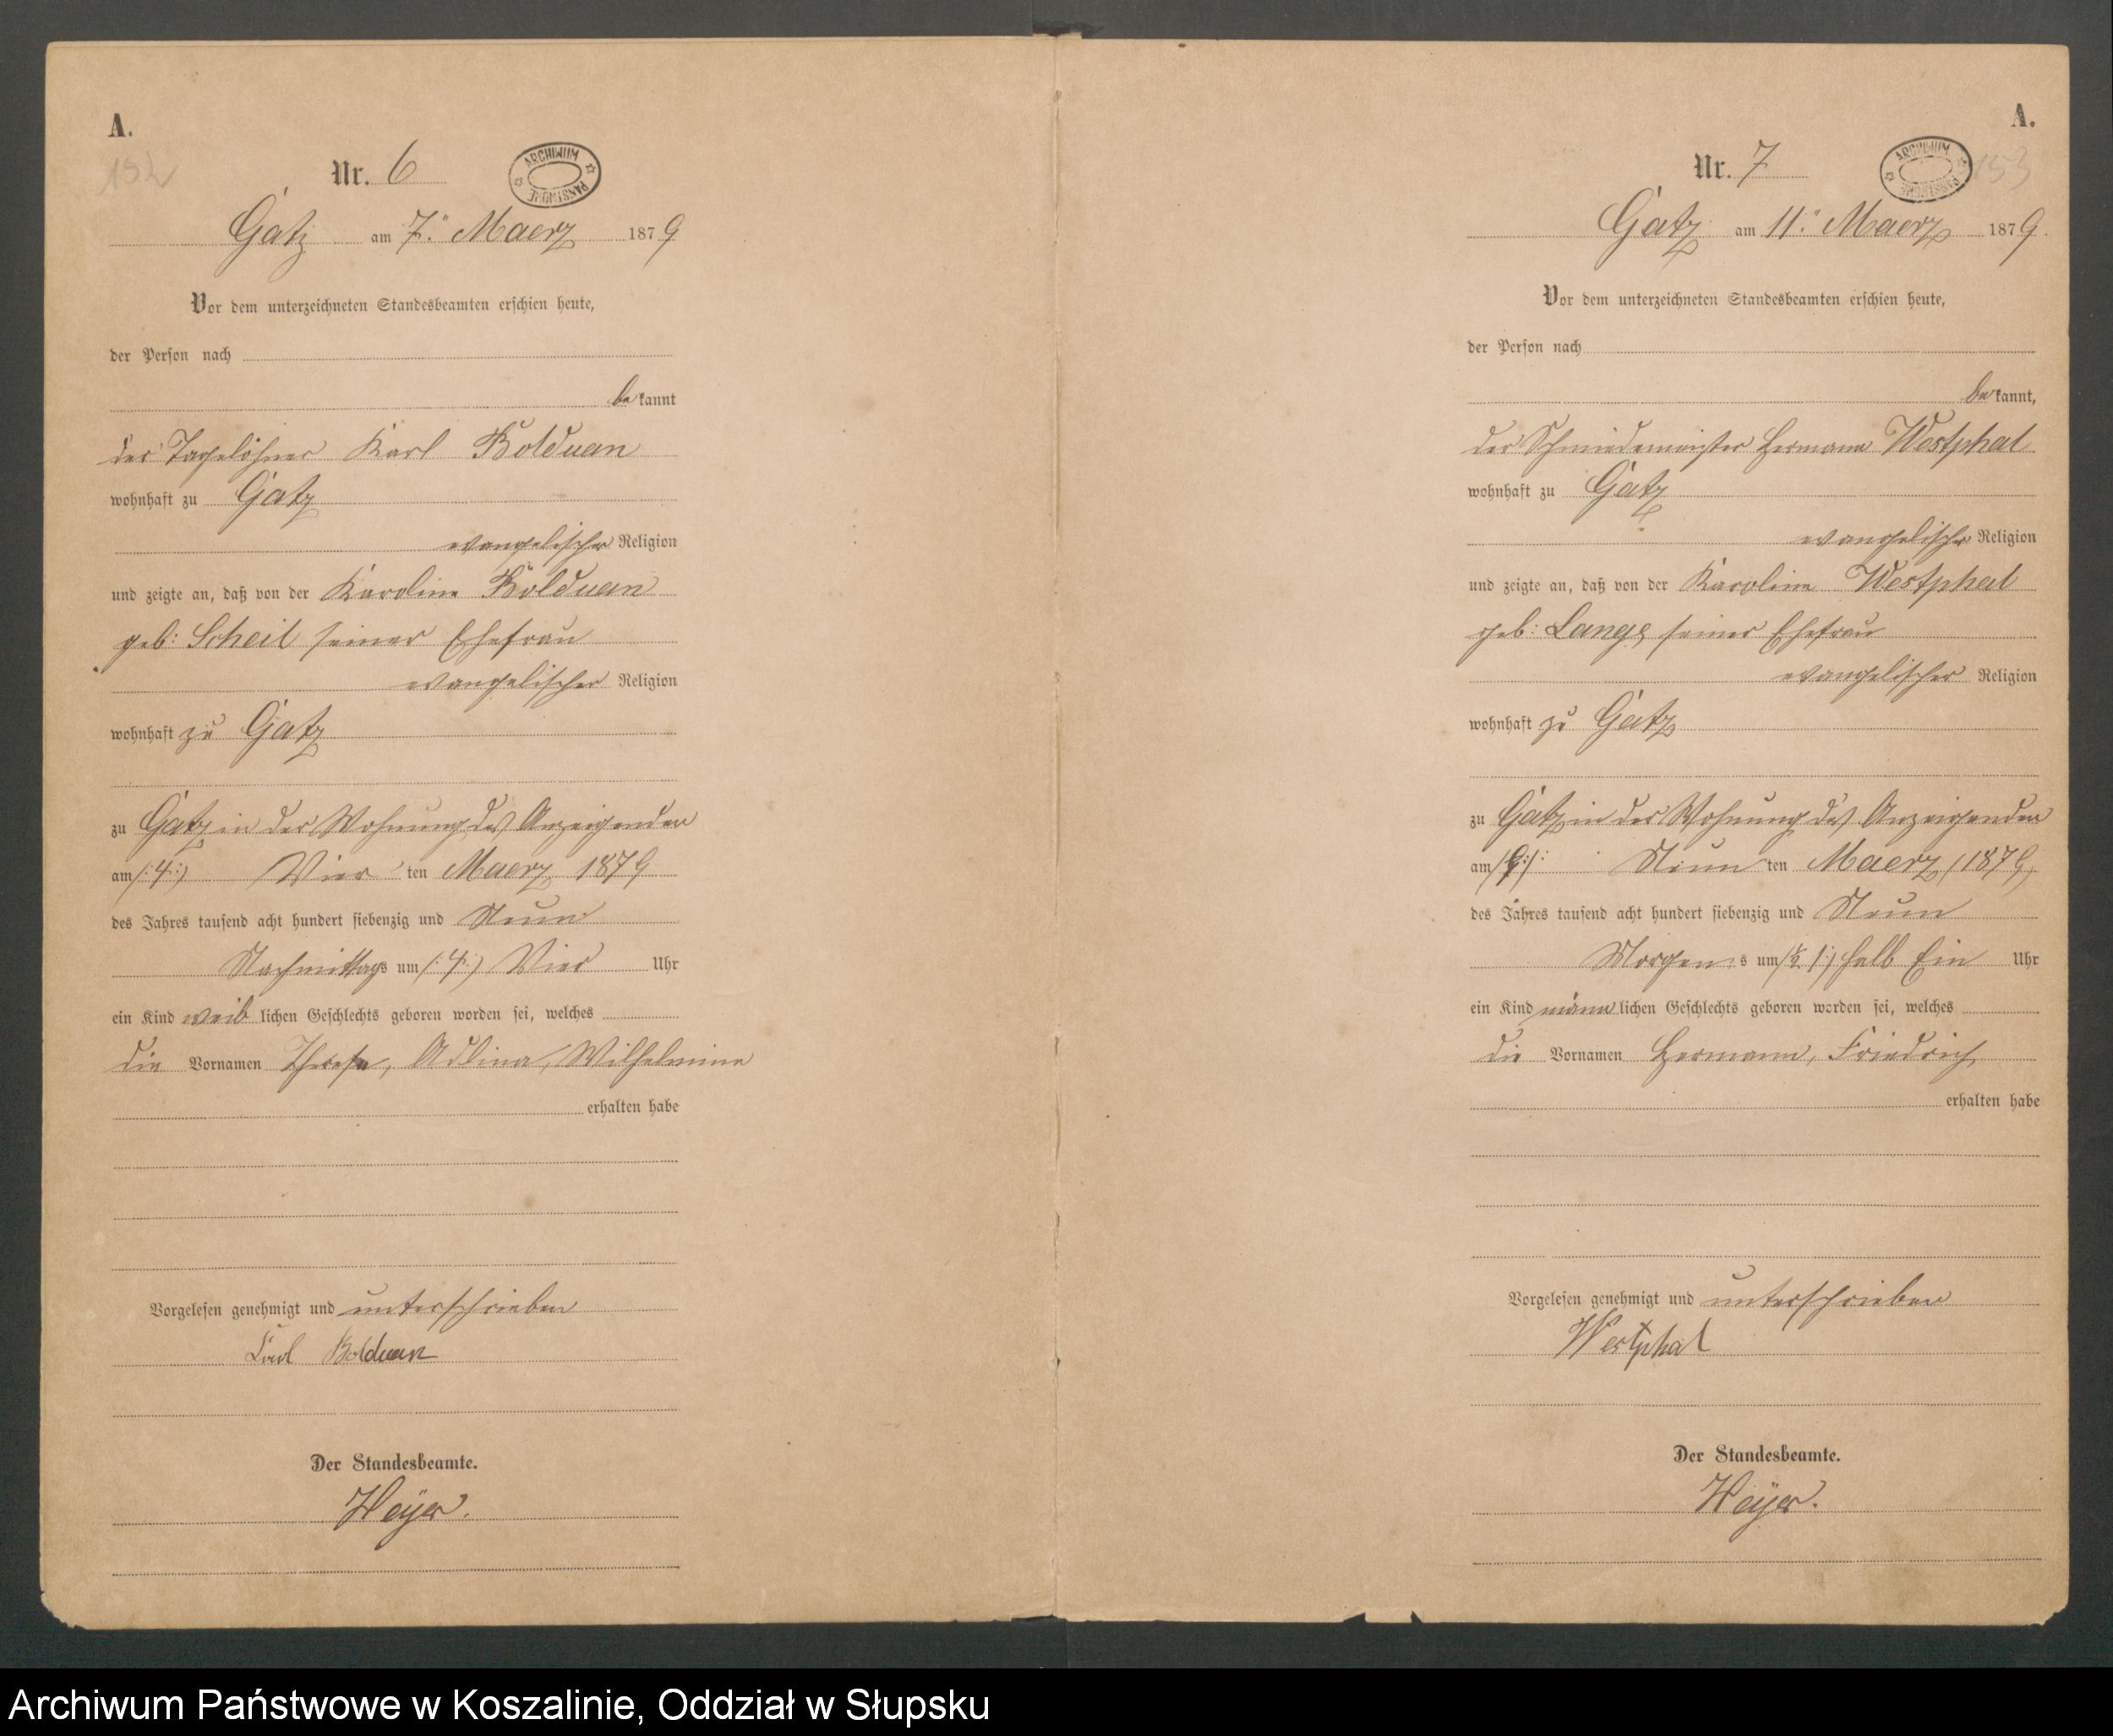 A.
152
Nr. 6
ARCHIWUM PAŃSTWOWE
Gatz am 7. Maerz 1879
Vor dem unterzeichneten Standesbeamten erschien heute,
der Person nach
bekannt
der Tagelöhner Karl Bolduan
wohnhaft zu Gatz
evangelischer Religion
und zeigte an, daß von der Karoline Bolduan
geb: Scheil seiner Ehefrau
evangelischer Religion
wohnhaft zu Gatz
zu Gatz in der Wohnung des Anzeigenden
am /:4:/ Vier ten Maerz 1879
des Jahres tausend acht hundert siebenzig und Neun
Nachmittags um /:4:/ Vier Uhr
ein Kind weib lichen Geschlechts geboren worden sei, welches
die Vornamen Therese, Adlina, Wilhelmine
erhalten habe
Vorgelesen genehmigt und unterschrieben
Karl Bolduan
Der Standesbeamte.
Heÿer.
A.
153
Nr. 7
ARCHIWUM PAŃSTWOWE
Gatz am 11. Maerz 1879.
Vor dem unterzeichneten Standesbeamten erschien heute,
der Person nach
bekannt,
der Schmiedemeister Hermann Westphal
wohnhaft zu Gatz
evangelischer Religion
und zeigte an, daß von der Karoline Westphal
geb: Lange seiner Ehefrau
evangelischer Religion
wohnhaft zu Gatz
zu Gatz in der Wohnung des Anzeigenden
am /:9:/ Neun ten Maerz /1879/
des Jahres tausend acht hundert siebenzig und Neun
Morgens um /:½ 1:/ halb Ein Uhr
ein Kind männ lichen Geschlechts geboren worden sei, welches
die Vornamen Hermann, Friedrich
erhalten habe
Vorgelesen genehmigt und unterschrieben
Westphal
Der Standesbeamte.
Heÿer.
Archiwum Państwowe w Koszalinie, Oddział w Słupsku